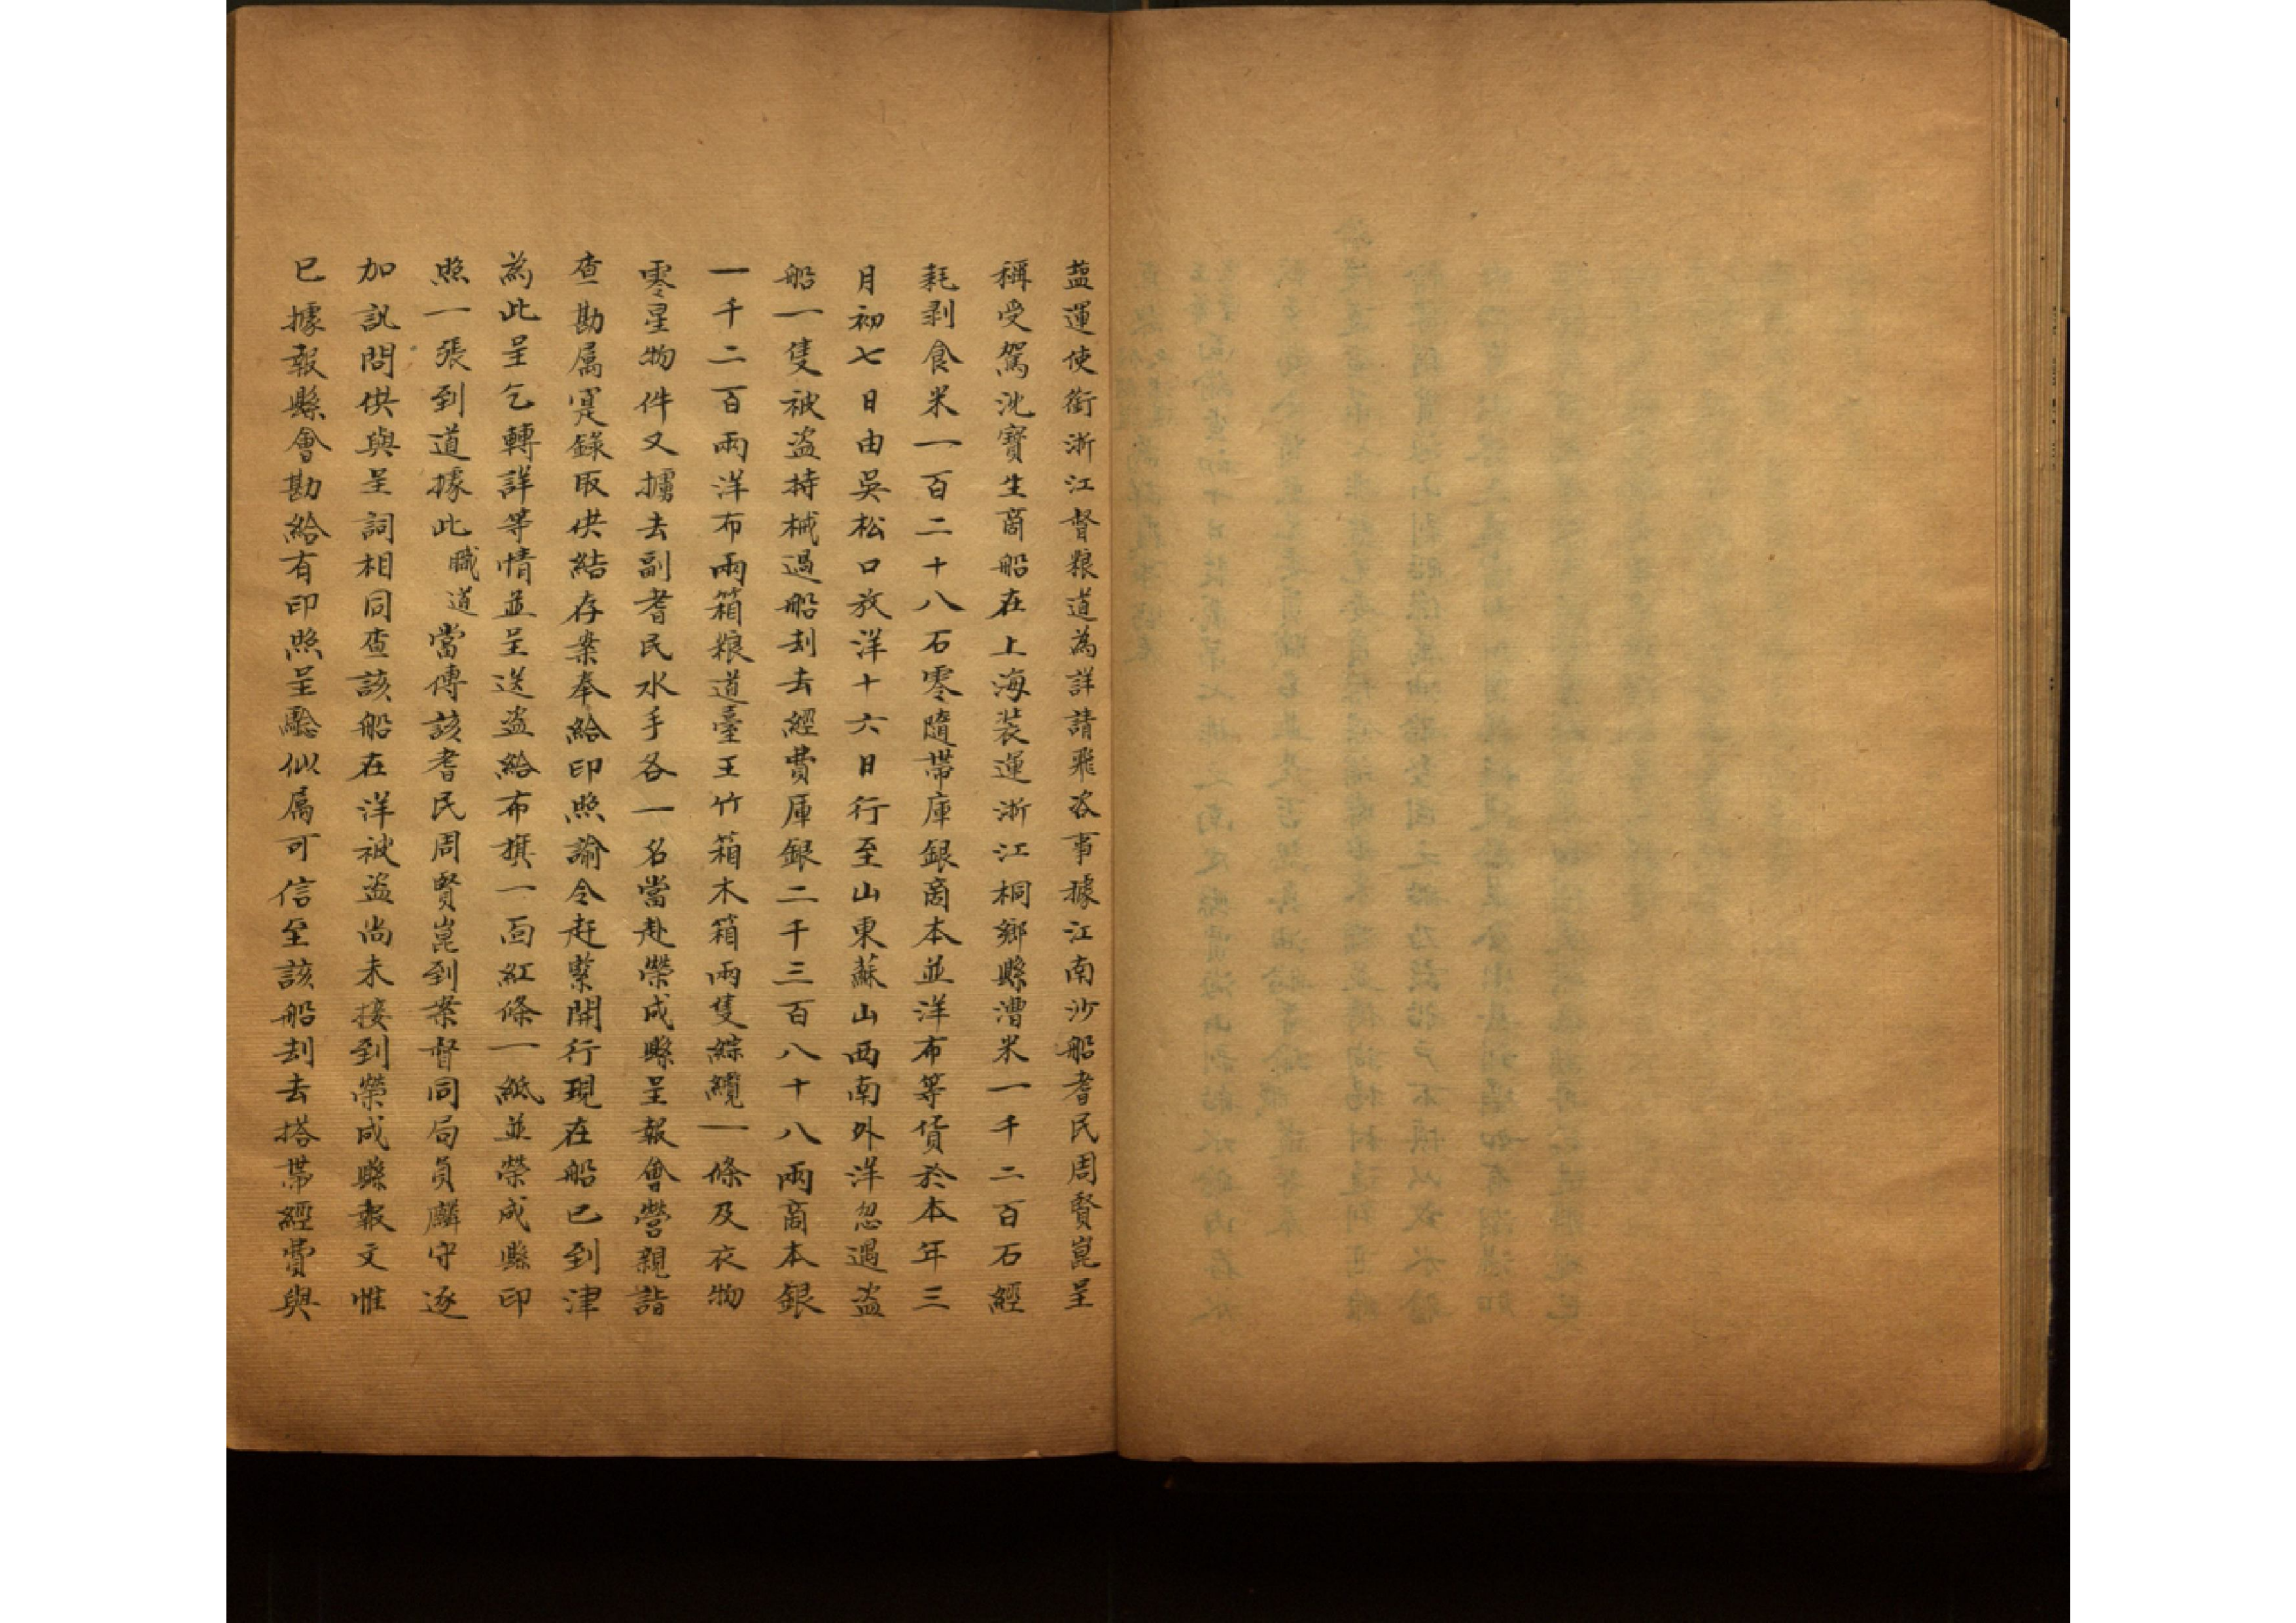 蓝運使銜浙江督粮道為詳請飛咨事據江南沙船耆民周賢崑呈
稱受駕沈寶生商船在上海裝運浙江桐鄉縣漕米一千二百石經
耗剥食米一百二十八石零隨帶庫銀商本並洋布等貨於本年三
月初七日由吳松口放洋十六日行至山東蘇山西南外洋忽遇盗
船一隻被盗持械過船刦去經費庫銀二千三百八十八兩商本銀
一千二百兩洋布兩箱粮道臺王竹箱木箱兩隻綜纜一條及衣物
零星物件又擄去副耆民水手各一名當赴榮成縣呈報會營親詣
查勘属寔錄取供結存案奉給印照諭令赶緊開行現在船已到津
為此呈乞轉詳等情並呈送盗給布旗一面紅條一紙並榮成縣印
照一張到道據此職道當傳該耆民周賢崑到案督同局員麟守逐
加訊問供與呈詞相同查該船在洋被盗尚未接到榮成縣報文惟
已據報縣會勘給有印照呈驗似属可信至該船刦去搭帶經費與